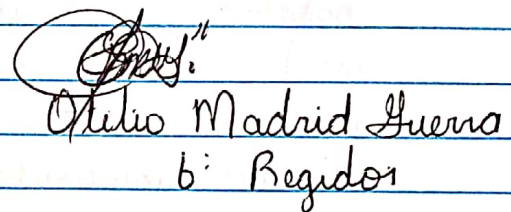 Otilio Madrid Guerra
6: Regidor